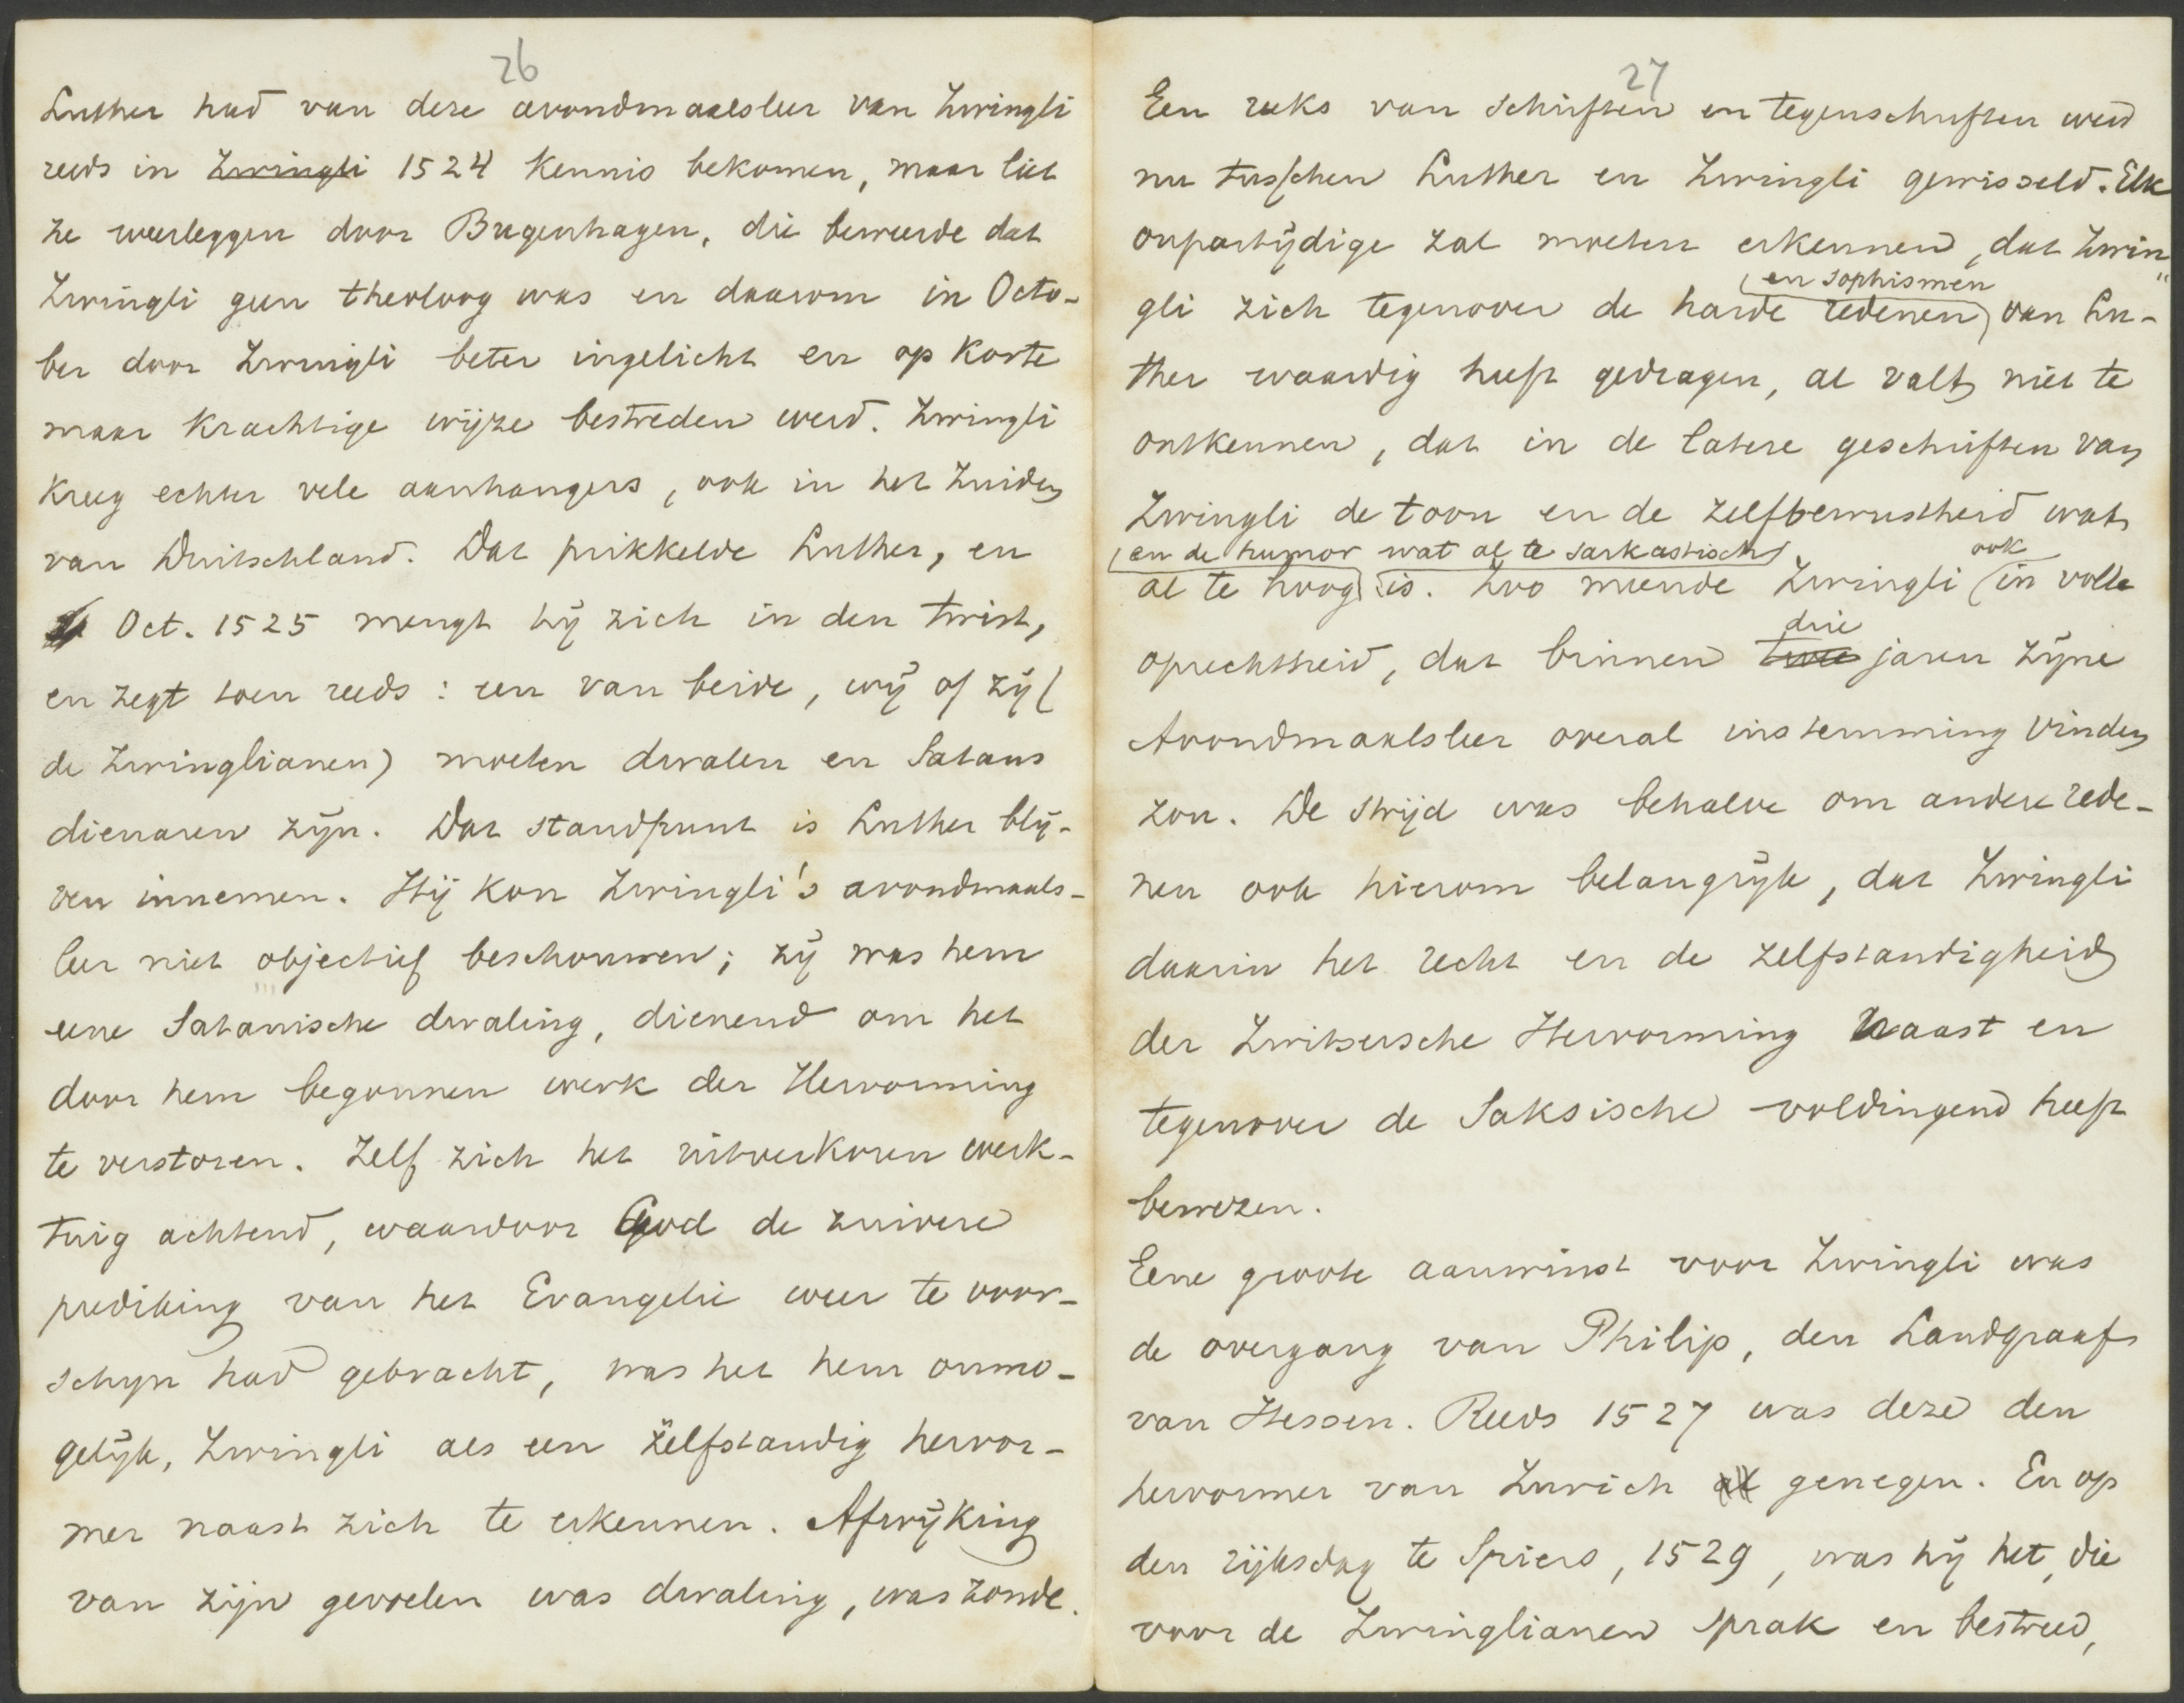 26
Luther had van deze avondmaalsleer van Zwingli
reeds in ~~Zwingli~~ 1524 kennis bekomen, maar liet
ze weerleggen door Bugenhagen, die beweerde dat
Zwingli geen theoloog was en daarom in Octo-
ber door Zwingli beter ingelicht en op korte
maar krachtige wijze bestreden werd. Zwingli
kreeg echter vele aanhangers, ook in het Zuiden
van Duitschland. Dat prikkelde Luther, en
Oct. 1525 mengt hij zich in den twist,
en zegt toen reeds: een van beide, wij of zij (
de Zwinglianen) moeten dwalen en Satans
dienaren zijn. Dat standpunt is Luther blij-
ven innemen. Hij kon Zwingli's avondmaals-
leer niet objectief beschouwen; zij was hem
eene Satanische dwaling, dienend om het
door hem begonnen werk der Hervorming
te verstoren. Zelf zich het uitverkoren werk-
tuig achtend, waardoor God de zuivere
prediking van het Evangelie weer te voor-
schijn had gebracht, was het hem onmo-
gelijk, Zwingli als een zelfstandig hervor-
mer naast zich te erkennen. Afwijking
van zijn gevoelen was dwaling, was zonde.
27
Een reeks van schriften en tegenschriften werd
nu tusschen Luther en Zwingli gewisseld. Elk
onpartijdige zal moeten erkennen, dat Zwin"
en sophismen
gli zich tegenover de harde redenen van Lu-
ther waardig heeft gedragen, al valt niet te
ontkennen, dat in de latere geschriften van
Zwingli de toon en de zelfbewustheid wat
en de humor wat al te sarkastisch ook
al te hoog is. Zoo meende Zwingli in volle
drie
oprechtheid, dat binnen ~~twee~~ jaren zijne
Avondmaalsleer overal instemming vinden
zou. De strijd was behalve om andere rede-
nen ook hierom belangrijk, dat Zwingli
daarin het recht en de zelfstandigheid
der Zwitsersche Hervorming naast en
tegenover de Saksische voldingend heeft
bewezen.
Eene groote aanwinst voor Zwingli was
de overgang van Philip, den Landgraaf
van Hessen. Reeds 1527 was deze den
hervormer van Zurich ~~al~~ genegen. En op
den rijksdag te Spiers, 1529, was hij het, die
voor de Zwinglianen sprak en bestreed,